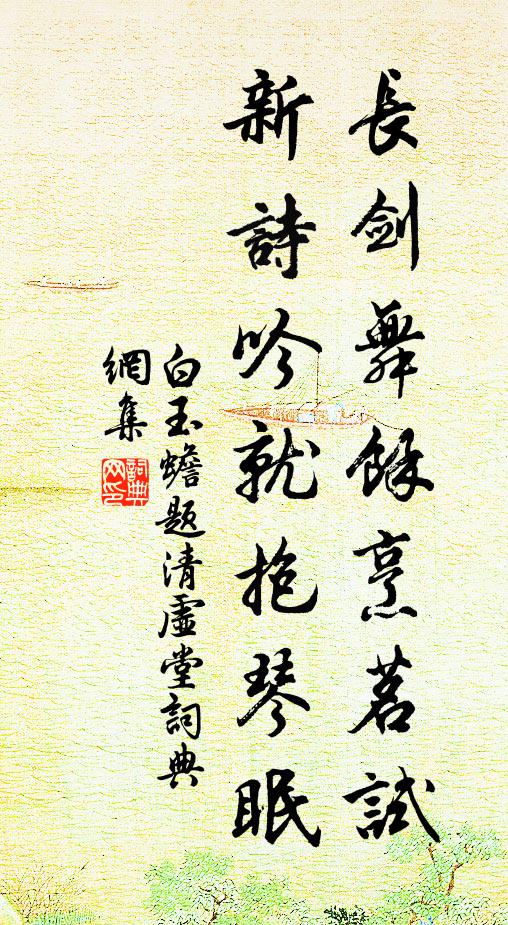 長劍舞餘烹茗試
新詩吟就抱琴眠
白玉蟾題清虛堂詞典
網集
詞典
网印